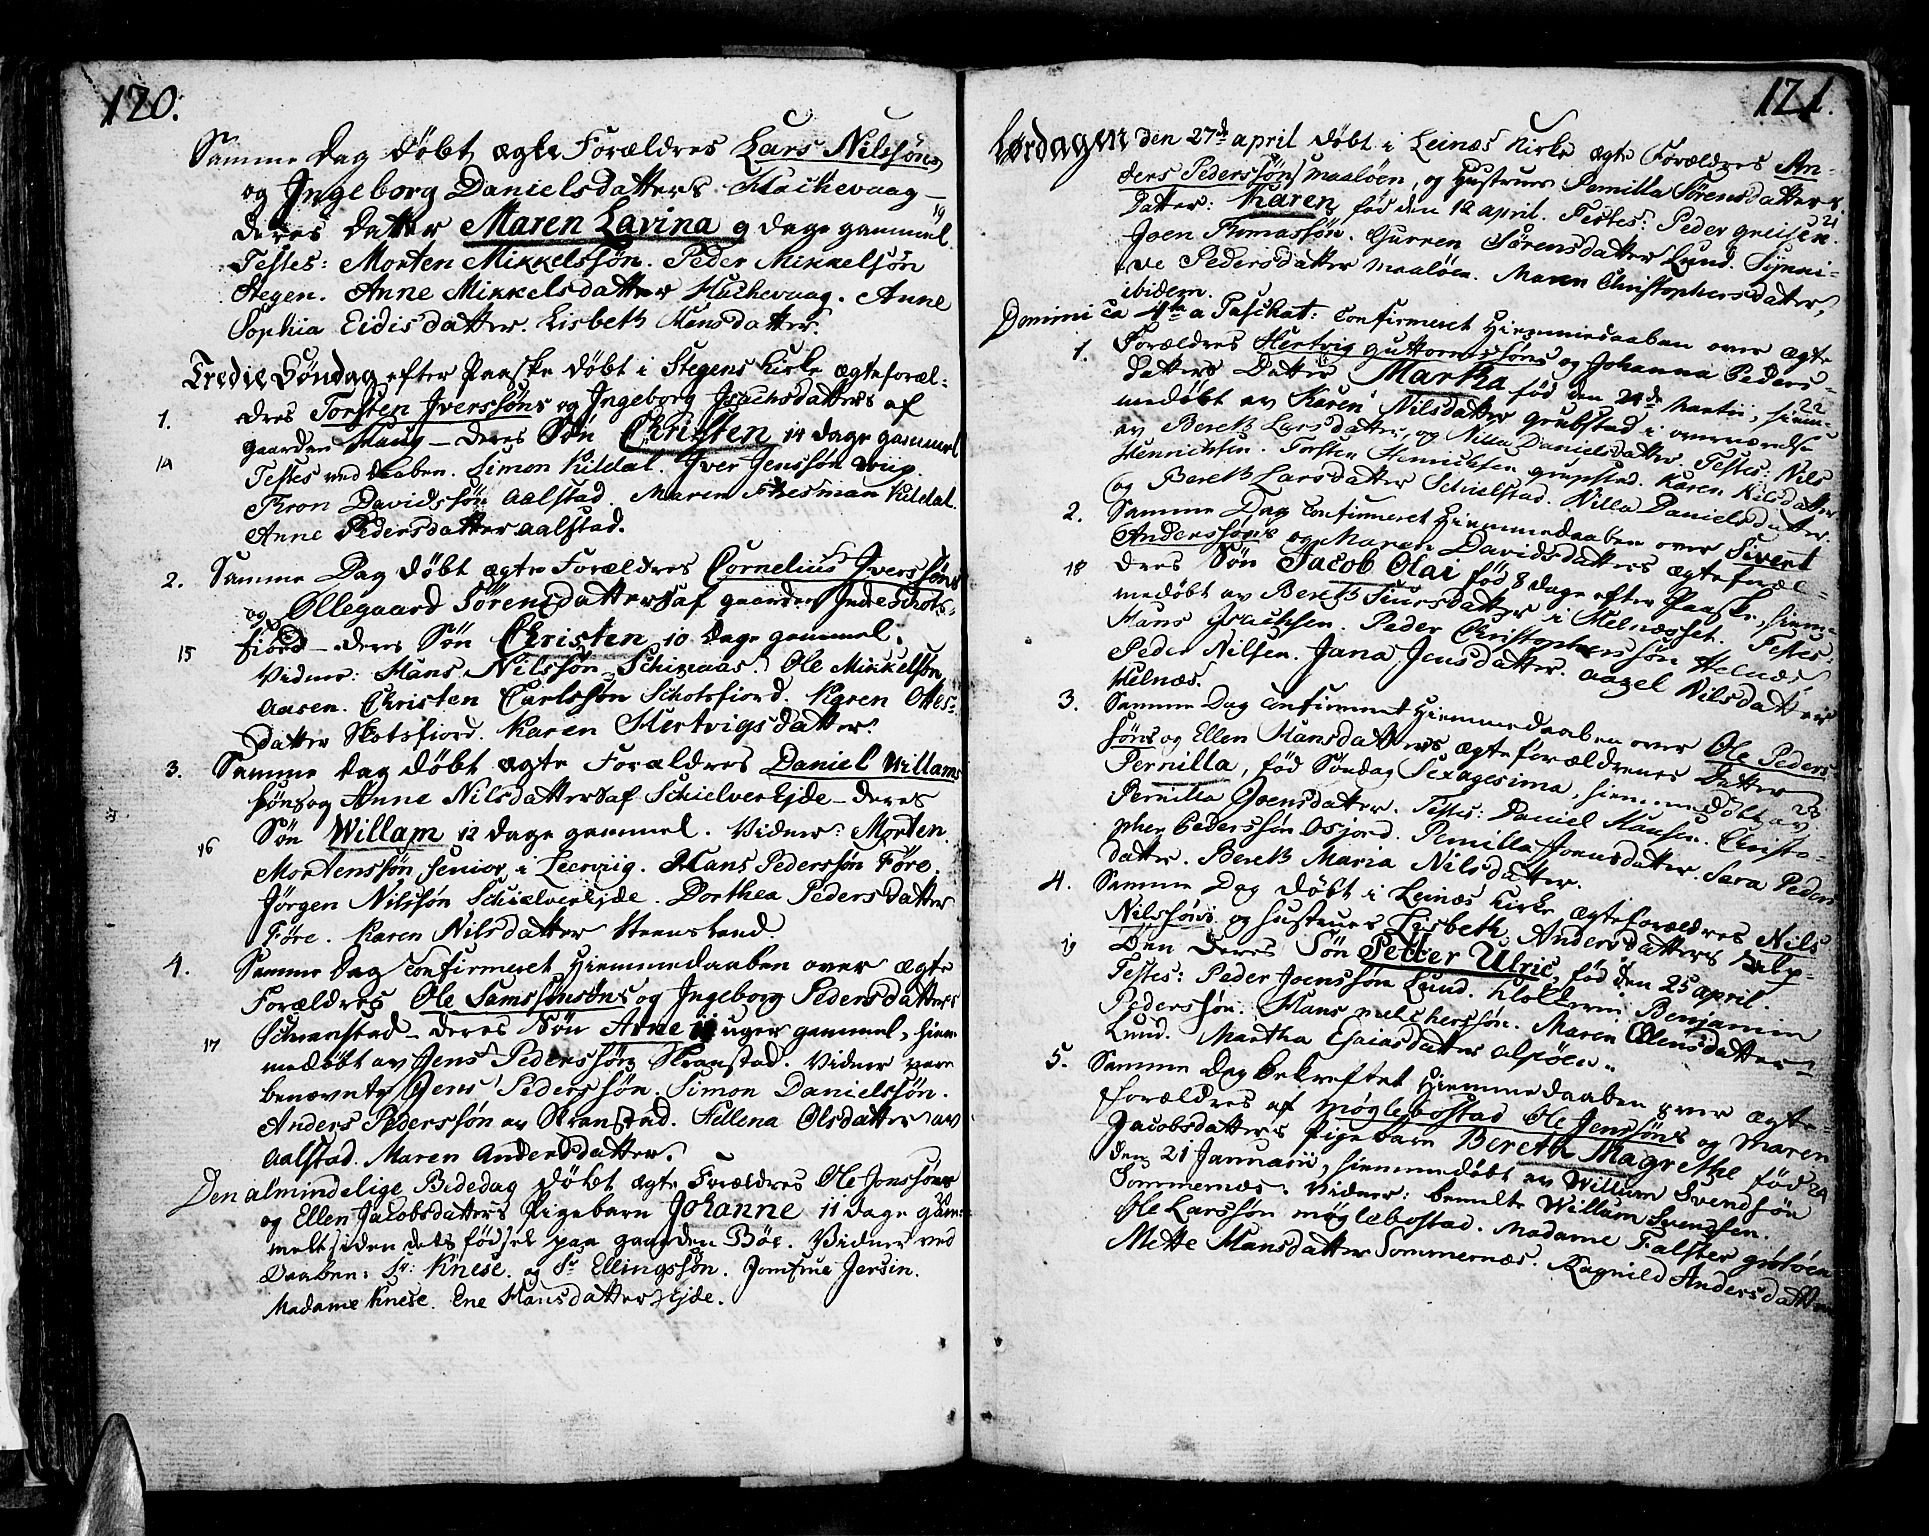 120.
Samme Dag døbt ægte Forældres Lars Nilssøns
og Ingeborg Danielsdatters Hachevaag –
deres Datter Maren Lavina 9 dage gammel 19
Testes: Morten Mikkelssøn. Peder Mikkelsøn
Stegen. Anne Mikkelsdatter Hachevaag. Anne
Sophia Eidisdatter. Lisbeth Hansdatter.
Tredie Søndag efter Paaske døbt i Stegens Kirke ægteforæl-
1. dres Torsten Iverssøns og Ingeborg Isachsdatters af
gaarden – deres Søn Christen 14 dage gammel
14 Testes ved daaben. Simon Kildal. Iver Jenssøn
Tron Davidssøn Aalstad. Maren Kildal.
Anne Pedersdatter Aalstad.
2. Samme Dag døbt ægte Forældres Cornelius Iverssøns
og Ollegaard Sørensdatters af gaarden Schots-
fiord – deres Søn Christen 10 dage gammel.
15 Vidner: Hans Nilssøn. Ole Mikkelsøn
Aasen. Christen Carlssøn Schotsfiord. Karen Ottes-
datter Skotsfiord. Karen Hertvigsdatter.
3. Samme Dag døbt ægte Forældres Daniel Willams
søns og Anne Nilsdatters af Schielverejde – deres
Søn Willam 12 dage gammel. Vidner: Morten
16 Mortenssøn senior i Leervig. Hans Pederssøn Føre.
Jørgen Nilssøn Schielverejde. Dorthea Pedersdatter
Føre. Karen Nilsdatter Steensland.
4. Samme Dag confirmeret Hiemmedaaben over ægte
Forældres Ole Samssønsøns og Ingeborg Pedersdatters
Schranstad – deres Søn Arne uger gammel, hiem-
17 medøbt av Jens Pederssøn Skranstad. Vidner vare
benævnte Jens Pederssøn. Simon Danielssøn.
Anders Pederssøn av Skranstad. Hellena Olsdatter av
Aalstad. Maren Andersdatter.
Den almindelige Bededag døbt ægte Forældres Ole Jonssøns
og Ellen Jacobsdatters Pigebarn Johanne 11 dage gam- 20
melt siden dets fødsel paa gaarden Bøe. Vidner ved
Daaben: Sr. Knese. og Sr Ellingssøn. Jomfrue Jersin.
Madame Knese. Ene Hansdatter Ejde.
121.
Lørdagen den 27de april døbt i Leinæs Kirke ægte Forældres An-
ders Pederssøns Maaløen, og Hustrues Pernilla Sørensdatters
Datter: Karen fød den 12 april. Testes: Peder Greisen. 21
Joen Thomassøn. Gurren Sørensdatter Lund. Synni-
ve Pedersdatter Maaløen. Maren Christophersdatter
ibidem.
Dominica 4ta a Paschat: confirmeret Hiemmedaaben over ægte
1. Forældres Hertvig Guttormssøns og Johanna Peders-
datters Datter Martha fød den 24de Martii, hiem- 22
medøbt av Karen Nilsdatter Grubstad i overværelse
av Bereth Larsdatter, og Nilla Danielsdatter. Testes: Nils
Henrichsen. Torsten Henrichsen Grupstad. Karen Nilsdatter
og Bereth Larsdatter Schielstad. Nilla Danielsdatter.
2. Samme Dag confirmeret Hiemmedaaben over Sivert
Anderssøns og Maren Davidsdatters ægteforæl-
18 dres Søn Jacob Olai fød 8 dage efter Paaske, hiem-
medøbt av Bereth Siversdatter i Helnæsset. Testes:
Hans Isachsen. Peder Christopherssøn Helnæs.
Peder Nilsen. Jana Jensdatter. Aagel Nilsdatter
Helnæs.
3. Samme Dag confirmeret Hiemmedaaben over Ole Peders-
søns og Ellen Hansdatters ægteforældrenes Datter
Pernilla, fød Søndag Sexagesima, hiemmedøbt av 23
Pernilla Joensdatter. Testes: Daniel Hansen. Christo-
pher Pederssøn Osjord. Pernilla Joensdatter. Sara Peders
datter. Bereth Maria Nilsdatter.
4. Samme Dag døbt i Leinæs Kirke ægteforældres Nils
Nilssøns og hustrues Lisbeth Andersdatters Kalv-
19 øen deres Søn Petter Ulric, fød den 25 april.
Testes: Peder Joenssøn Lund. Benjamin
Pederssøn. Hans Melcherssøn. Maren Ellensdatter
Lund. Martha Esaiasdatter Alpøen.
5. Samme Dag bekreftet Hiemmedaaben over ægte-
forældres af Møglebostad Ole Jenssøns og Maren
Jacobsdatters Pigebarn Bereth Magrethe fød 24
den 21 Januarii, hiemmedøbt av Willum Svendsøn
Sommernæs. Vidner: bemelte Willum Svendsen.
Ole Larssøn Møglebostad. Madame Falster Grøtøen
Mette Hansdatter Sommernæs. Ragnild Andersdatter